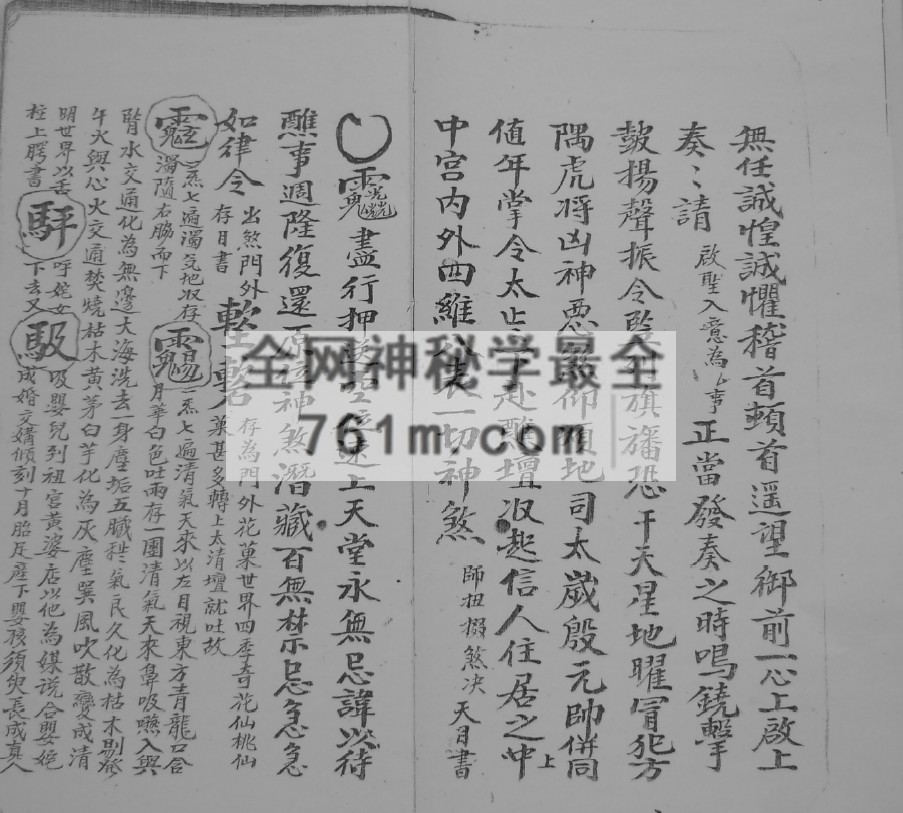 無任誠惶誠懼稽首頓首遥望御前一心上啟上
奏〻請 啟聖入意為事 正當發奏之時鳴鐃擊
皷揚聲振令 旗旛恐干天星地曜冒犯方
隅虎將凶神惡煞仰 地司太歲殷元帥併同
值年掌令太 赴醮壇 起信人住居之中上
中宮内外四維 一切神煞 師扭掇煞决 天月書
盡行押 上天堂永無忌諱以待
醮事週隆復還原 神煞潛藏百無禁忌急急
如律令 存月書 出煞門外 存為門外花菓世界四季奇花仙桃仙
菓甚多轉上太清壇就吐故
炁七遍濁气地収存
濁隨右脇而下
炁七遍清氣天來以左目視東方青龍口合
月華白色吐兩存一團清氣天來鼻吸嚥入與
腎水交通化為無邊大海洗去一身塵垢五臟 氣良久化為枯木 發
午火與心火交通焚燒枯木黄茅白竿化為灰塵巽風吹散變成清
明世界以舌
柱上腭書 呼姹女
下去又 吸嬰兒到祖宫黄婆店以他為媒説合嬰姹
成婚交媾傾刻十月胎足產下嬰孩須臾長成真人
全网神秘学最全
761m.com